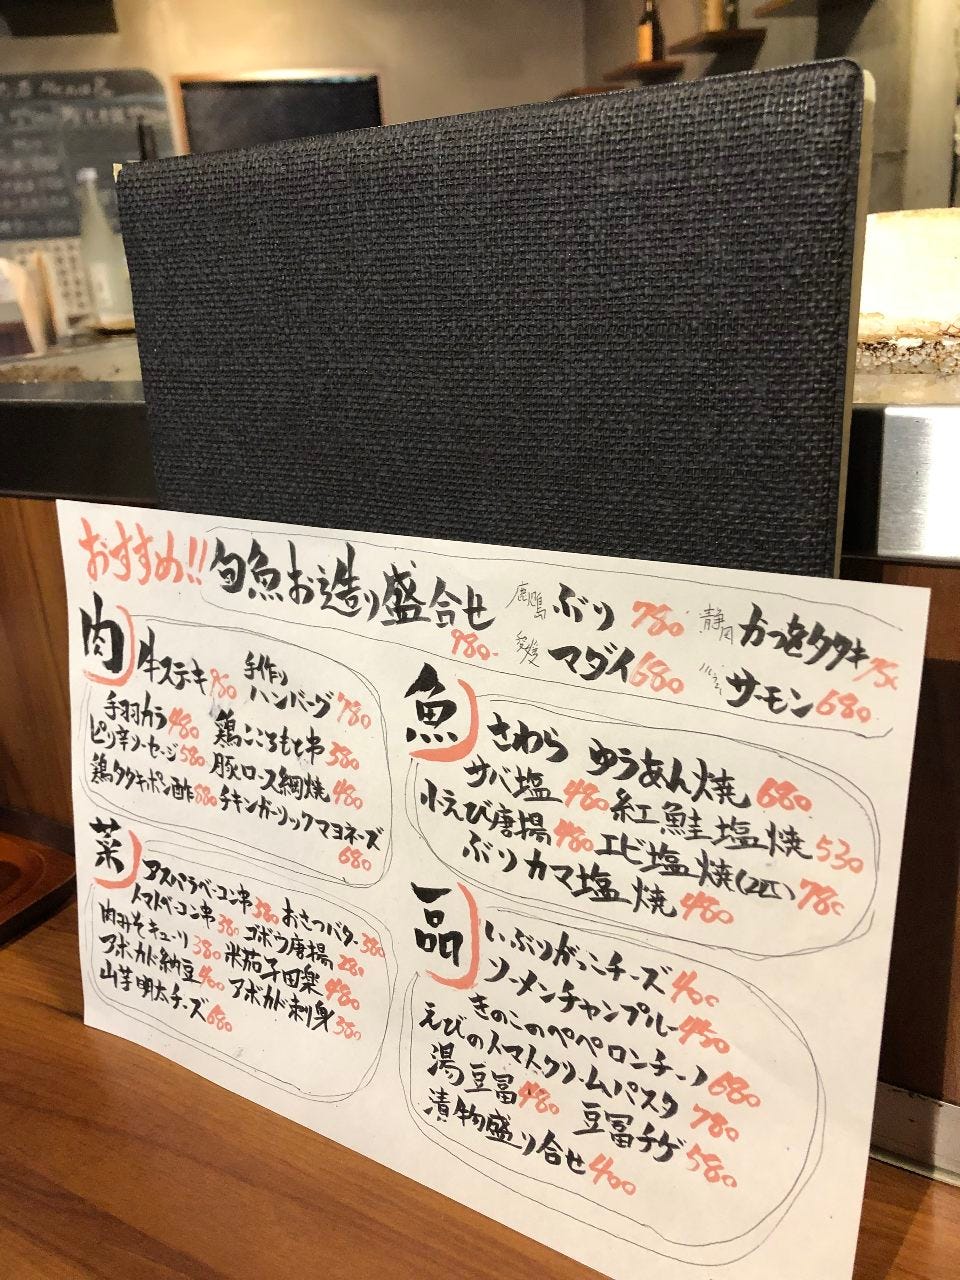 おすすめ!! 旬魚お造り盛合せ 980
鹿児島 ぶり 780 静岡 かつをタタキ 75
愛媛 マダイ 680 サーモン 680
肉
牛ステキ 980 手作りハンバーグ 780
手羽カラ 480 鶏こころもと串 380
ピリ辛ソーセージ 580 豚ロース網焼 480
鶏タタキポン酢 680 チキンガーリックマヨネーズ 680
菜
アスパラベーコン串 380 おさつバター 380
トマトベーコン串 380 ゴボウ唐揚 280
肉みそキューリ 380 米茄子田楽 480
アボカド納豆 400 アボカド刺身 380
山芋明太チーズ 680
魚
さわらゆうあん焼 680
サバ塩 480 紅鮭塩焼 530
小えび唐揚 480 エビ塩焼(2匹) 780
ぶりカマ塩焼 480
一品
いぶりがっこチーズ 400
ソーメンチャンプルー 450
きのこのペペロンチーノ 680
えびのトマトクリームパスタ 780
湯豆冨 480 豆冨チゲ 580
漬物盛り合せ 400